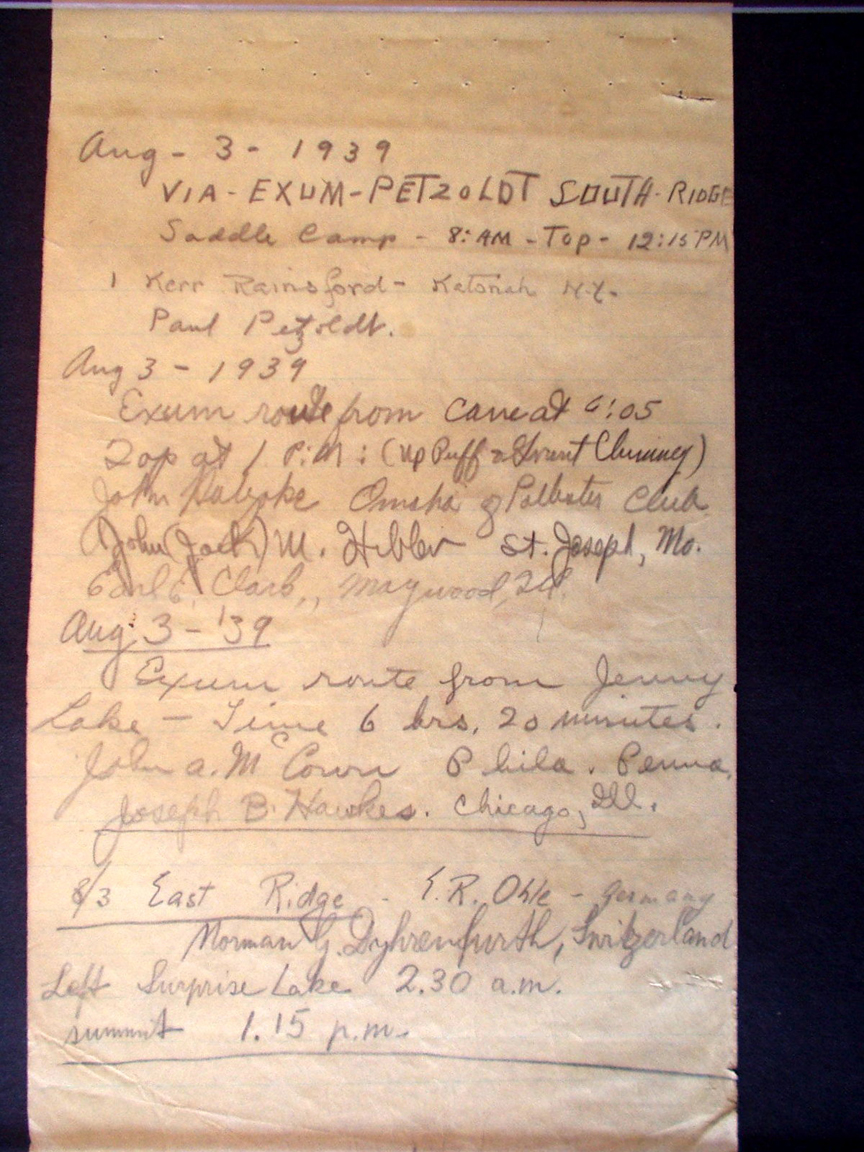 Aug - 3 - 1939
VIA - EXUM - PETZOLDT SOUTH - RIDGE
Saddle Camp - 8: AM - Top - 12:15 PM
1 Kerr Rainsford - Katonah N.Y.
Paul Petzoldt.
Aug 3 - 1939
Exum route from cave at 6:05
Top at 1 P.M: (up Puff & Grunt Chimney)
John Omaha Club
(John (Jack) M. Hibler St. Joseph, Mo.
Earl E. Clark, Maywood, Ill.
Aug 3 - '39
Exum route from Jenny
Lake - Time 6 hrs, 20 minutes.
John A. McCown Phila. Penna.
Joseph B. Hawkes. Chicago, Ill.
8/3 East Ridge - E.R. Ohle - Germany
Norman G. Dyhrenfurth, Switzerland
Left Surprise Lake 2.30 a.m.
summit 1.15 p.m.